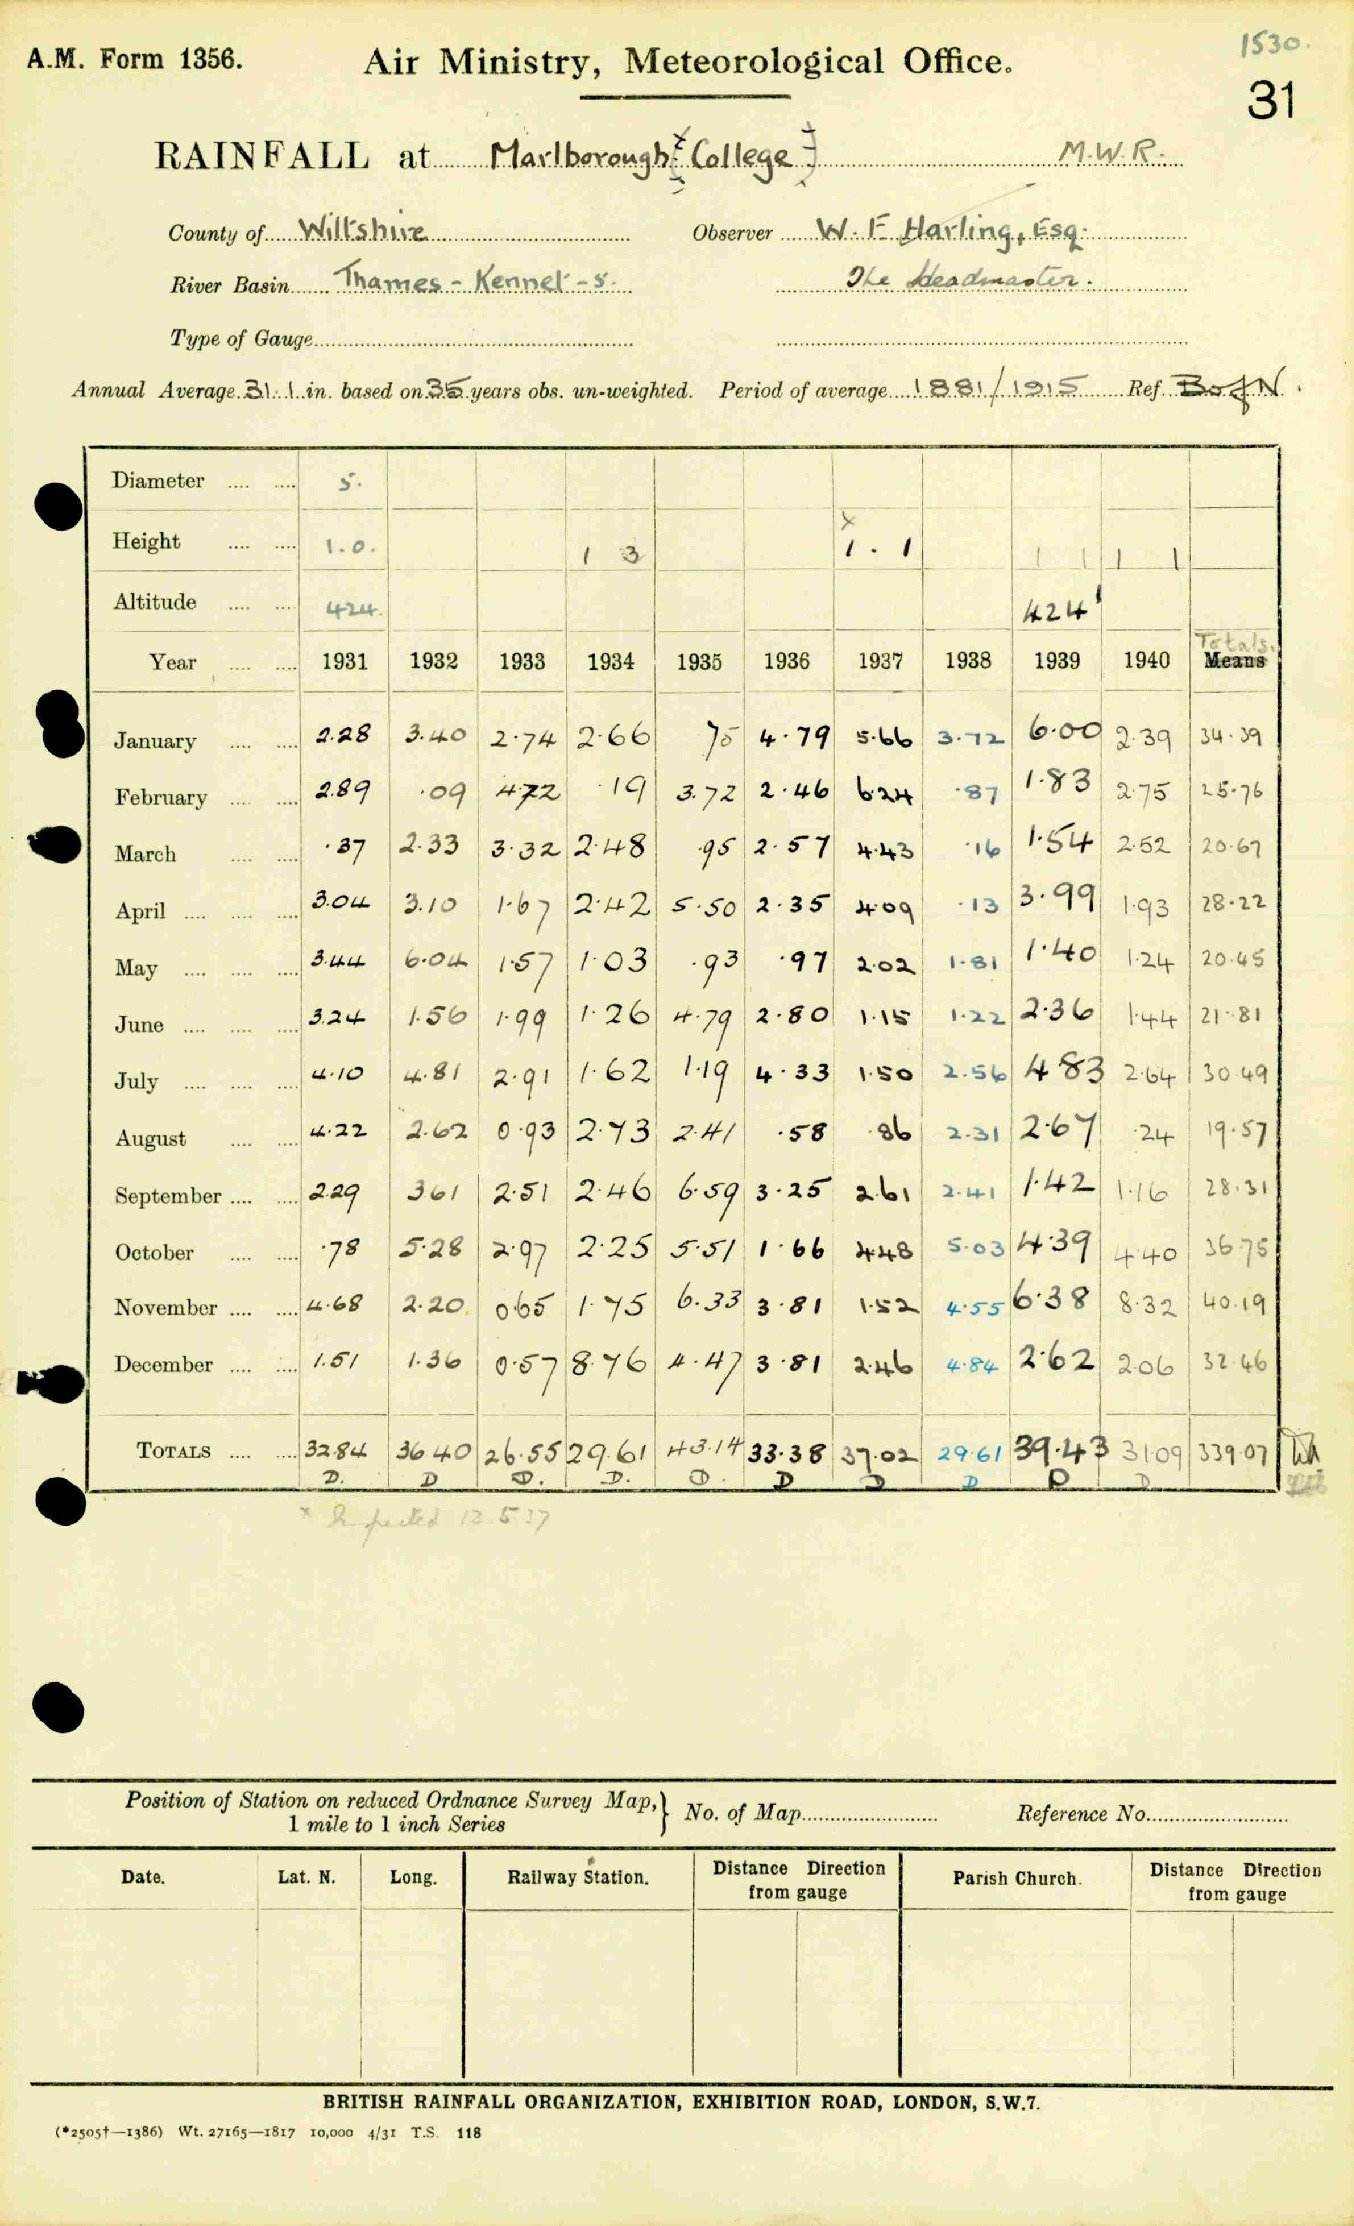 1530.
A.M. Form 1356. Air Ministry, Meteorological Office.
31
RAINFALL at Marlborough [College] M.W.R.
County of Wiltshire Observer W. F. Harling, Esq.
River Basin Thames - Kennet - S. The Headmaster.
Type of Gauge
Annual Average 31.1 in. based on 35 years obs. un-weighted. Period of average 1881/1915 Ref. B of N.
Diameter 5.
Height 1.0. 1 3 x 1.1 1 1 1 1
Altitude 424. 424'
Totals.
Year 1931 1932 1933 1934 1935 1936 1937 1938 1939 1940 Means
January 2.28 3.40 2.74 2.66 .75 4.79 5.66 3.72 6.00 2.39 34.39
February 2.89 .09 4.72 .19 3.72 2.46 6.24 .87 1.83 2.75 25.76
March .37 2.33 3.32 2.48 .95 2.57 4.43 .16 1.54 2.52 20.67
April 3.04 3.10 1.67 2.42 5.50 2.35 4.09 .13 3.99 1.93 28.22
May 3.44 6.04 1.57 1.03 .93 .97 2.02 1.81 1.40 1.24 20.45
June 3.24 1.56 1.99 1.26 4.79 2.80 1.15 1.22 2.36 1.44 21.81
July 4.10 4.81 2.91 1.62 1.19 4.33 1.50 2.56 4.83 2.64 30.49
August 4.22 2.62 0.93 2.73 2.41 .58 .86 2.31 2.67 .24 19.57
September 2.29 3.61 2.51 2.46 6.59 3.25 2.61 2.41 1.42 1.16 28.31
October .78 5.28 2.97 2.25 5.51 1.66 4.48 5.03 4.39 4.40 36.75
November 4.68 2.20 0.65 1.75 6.33 3.81 1.52 4.55 6.38 8.32 40.19
December 1.51 1.36 0.57 8.76 4.47 3.81 2.46 4.84 2.62 2.06 32.46
TOTALS 32.84 36.40 26.55 29.61 43.14 33.38 37.02 29.61 39.43 31.09 339.07
D. D D. D. D. D D D D D
x Inspected 12.5.37
Position of Station on reduced Ordnance Survey Map, 1 mile to 1 inch Series } No. of Map Reference No.
Date. Lat. N. Long. Railway Station. Distance Direction from gauge Parish Church. Distance Direction from gauge
BRITISH RAINFALL ORGANIZATION, EXHIBITION ROAD, LONDON, S.W.7.
(*2505†—1386) Wt. 27165—1817 10,000 4/31 T.S. 118